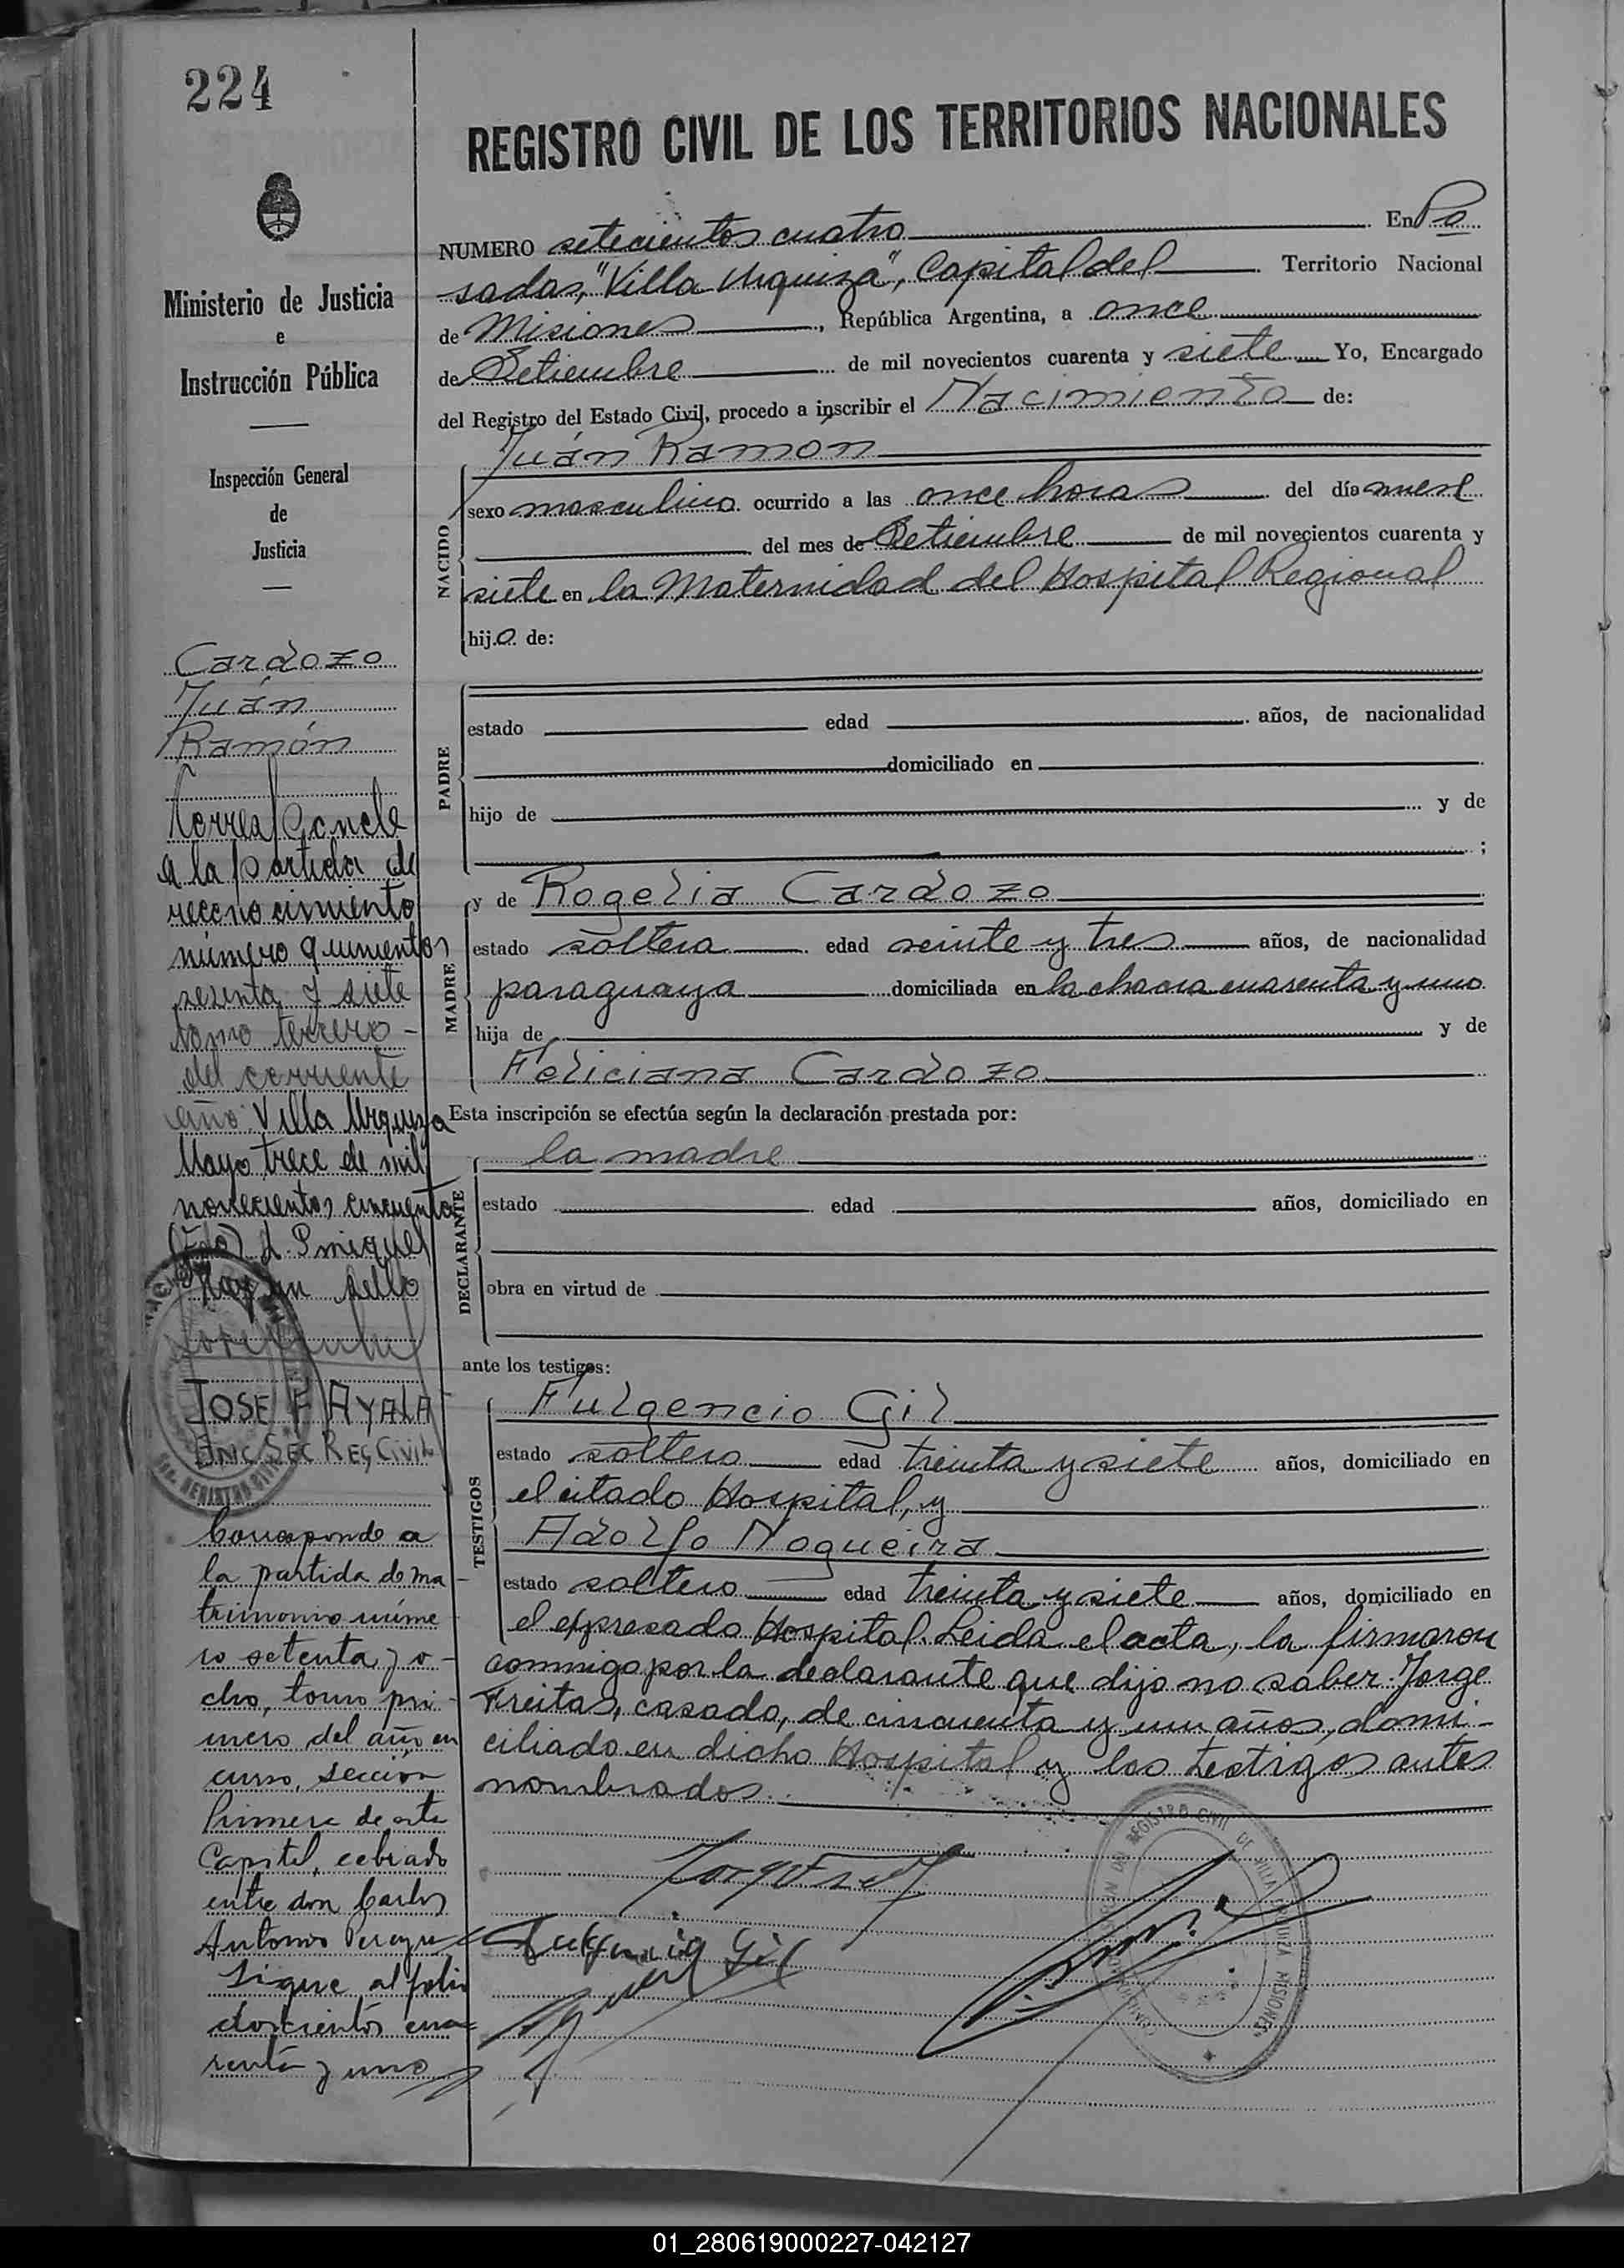 224
REGISTRO CIVIL DE LOS TERRITORIOS NACIONALES
Ministerio de Justicia
e
Instrucción Pública
Inspección General
de
Justicia
Cardozo
Juán
Ramón
a la partida de
reconocimiento
número quinientos
sesenta y siete
tomo tercero
del corriente
año. Villa Urquiza
Mayo trece de mil
novecientos cincuenta
(Fdo) L. P. Miquel
Hay un sello
JOSE F AYALA
ENC SEC REG Civil
Corresponde a
la partida de ma
trimonio núme
ro setenta y o-
cho, tomo pri-
mero del año en
curso, sección
Primera de esta
Capital, cebrado
entre don Carlos
Antonio
Sigue al folio
doscientos cua-
renta y uno
NUMERO setecientos cuatro En Po
sadas, "Villa Urquiza", Capital del Territorio Nacional
de Misiones, República Argentina, a once
de Setiembre de mil novecientos cuarenta y siete Yo, Encargado
del Registro del Estado Civil, procedo a inscribir el Nacimiento de:
NACIDO
Juán Ramón
sexo masculino ocurrido a las once horas del día nueve
del mes de Setiembre de mil novecientos cuarenta y
siete en la Maternidad del Hospital Regional
hijo de:
PADRE
estado edad años, de nacionalidad
domiciliado en
hijo de y de
;
MADRE
y de Rogelia Cardozo
estado soltera edad veinte y tres años, de nacionalidad
paraguaya domiciliada en la chacra cuarenta y uno
hija de y de
Feliciana Cardozo
Esta inscripción se efectúa según la declaración prestada por:
DECLARANTE
la madre
estado edad años, domiciliado en
obra en virtud de
ante los testigos:
TESTIGOS
Fulgencio Gil
estado soltero edad treinta y siete años, domiciliado en
el citado Hospital, y
Adolfo Nogueira
estado soltero edad treinta y siete años, domiciliado en
el expresado Hospital. Leida el acta, la firmaron
conmigo por la declarante que dijo no saber Jorge
Freitas, casado, de cincuenta y un años, domi-
ciliado en dicho Hospital y los testigos antes
nombrados.
Fulgencio Gil
REGISTRO CIVIL DE VILLA URQUIZA MISIONES
01_280619000227-042127